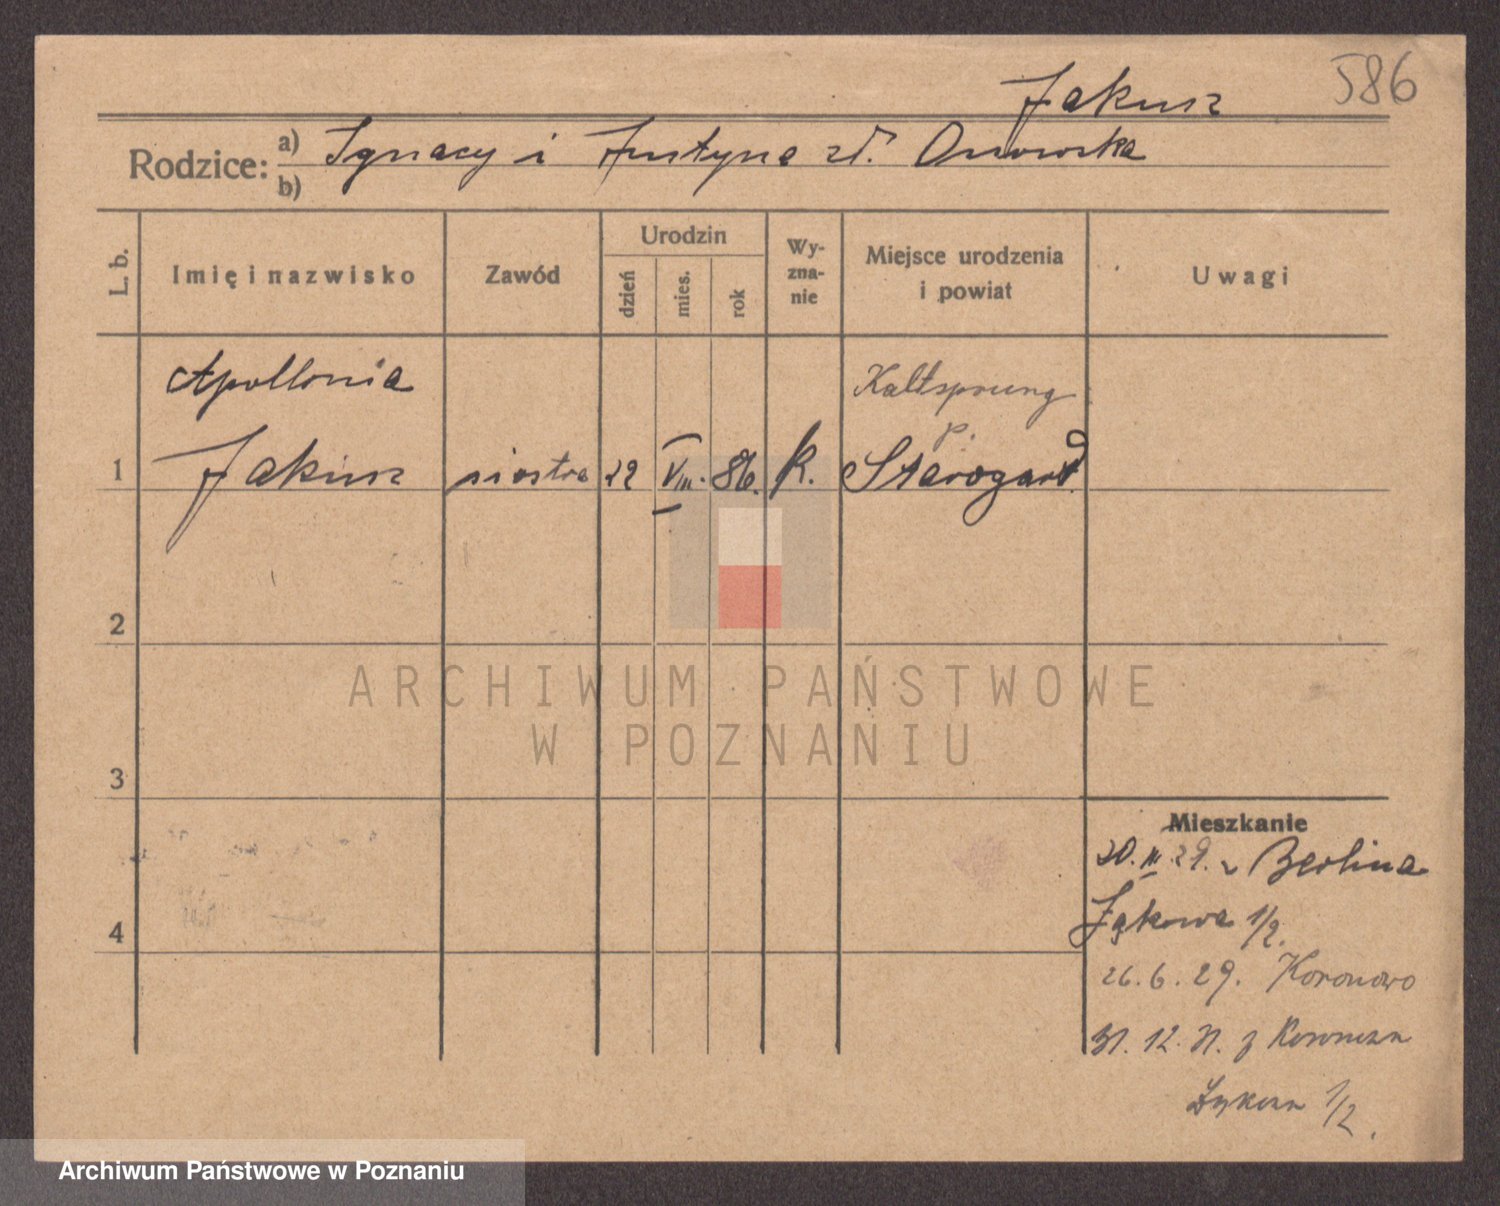 586
Jakusz
Rodzice: a) Ignacy i Justyna zd. Ossowska
b)
L. b.
Imię i nazwisko
Zawód
Urodzin
dzień
mies.
rok
Wy-
zna-
nie
Miejsce urodzenia
i powiat
Uwagi
Apollonia
Kaltsprung
p.
1 Jakusz siostra 22 VIII. 86. k. Starogard
2
ARCHIWUM PAŃSTWOWE
W POZNANIU
3
Mieszkanie
20. III. 29. z Berlina
4 Łąkowa 1/2.
26. 6. 29. Koronowo
31. 12. 31. z Koronowa
Łąkowa 1/2.
Archiwum Państwowe w Poznaniu